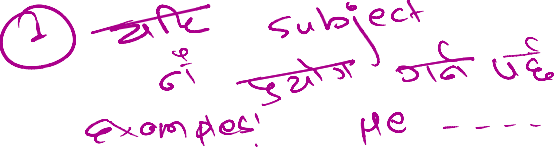 ① यदि subject
नै प्रयोग गर्न पर्छ
examples! He ----